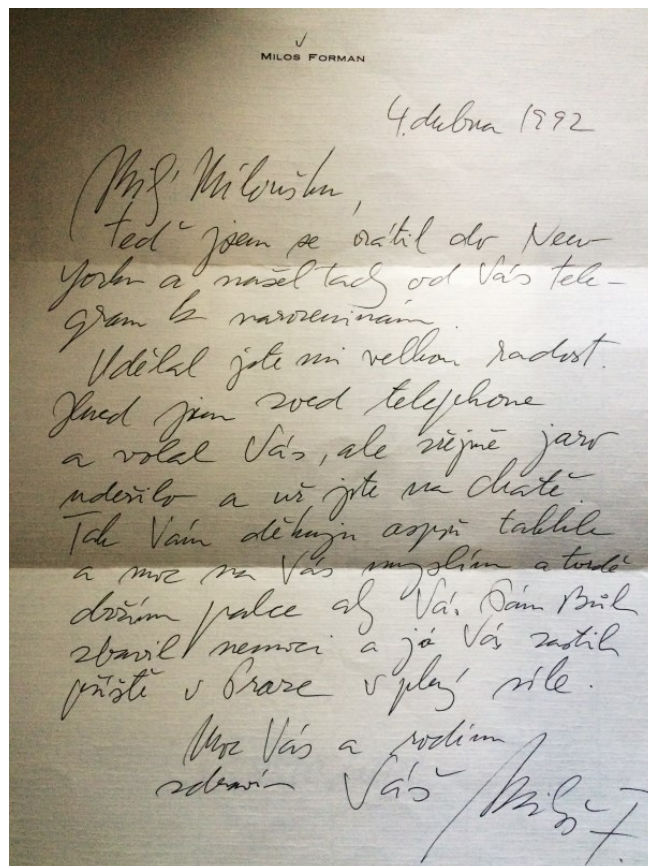 MILOS FORMAN
4. dubna 1992
Milý Miloušku,
teď jsem se vrátil do New
Yorku a našel tady od Vás tele-
gram k narozeninám.
Udělal jste mi velkou radost.
Hned jsem zved telephone
a volal Vás, ale zřejmě jaro
udeřilo a už jste na chatě.
Tak Vám děkuju aspoň takhle
a moc na Vás myslím a tvrdě
držím palce aby Vás Pám Bůh
zbavil nemoci a já Vás zastih
příště v Praze v plný síle.
Moc Vás a rodinu
zdravím Váš Miloš F